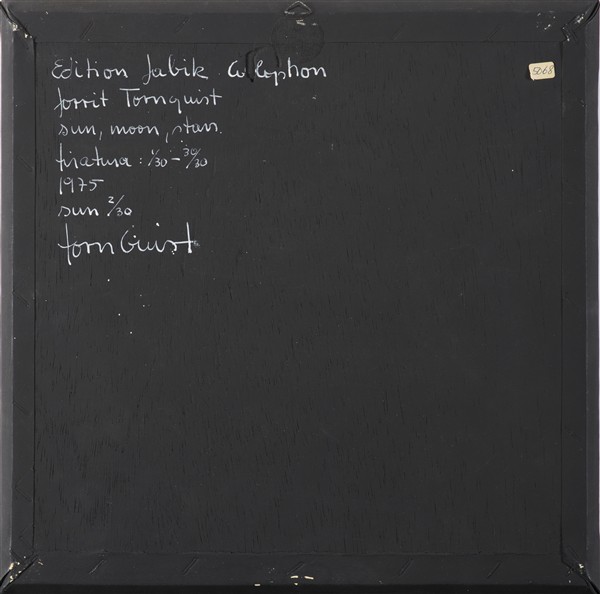 Edition Jabik Colophon
5068
Jorrit Tornquist
sun, moon, stars.
tiratura: 1/30 - 30/30
1975
sun 2/30
tornquist